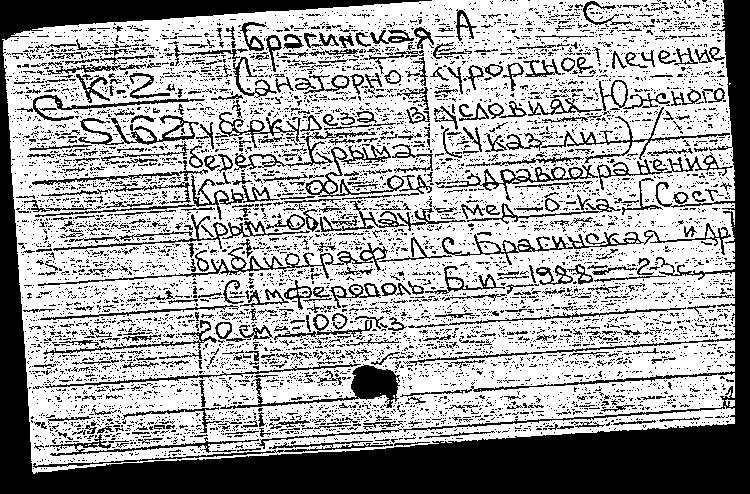 С
Брагинская А
Ki-2 Санаторно-курортное лечение
S162 туберкулеза в условиях Южного
берега Крыма (Указ. лит.) /
Крым. обл. отд. здравоохранения,
Крым. обл. науч. мед. б-ка; [Сост.
библиограф Л.С. Брагинская и др.
- Симферополь: Б.и., 1988.- 23с.;
20 см. -100 экз